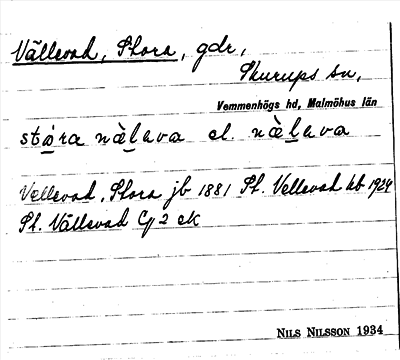 Vällevad, Stora, gdr,
Skurups sn,
Vemmenhögs hd, Malmöhus län
stora nèlava el. nèlava
Vellevad, Stora jb 1881 St. Vellevad kb 1924
St. Vällevad Cg 2 ek
NILS NILSSON 1934